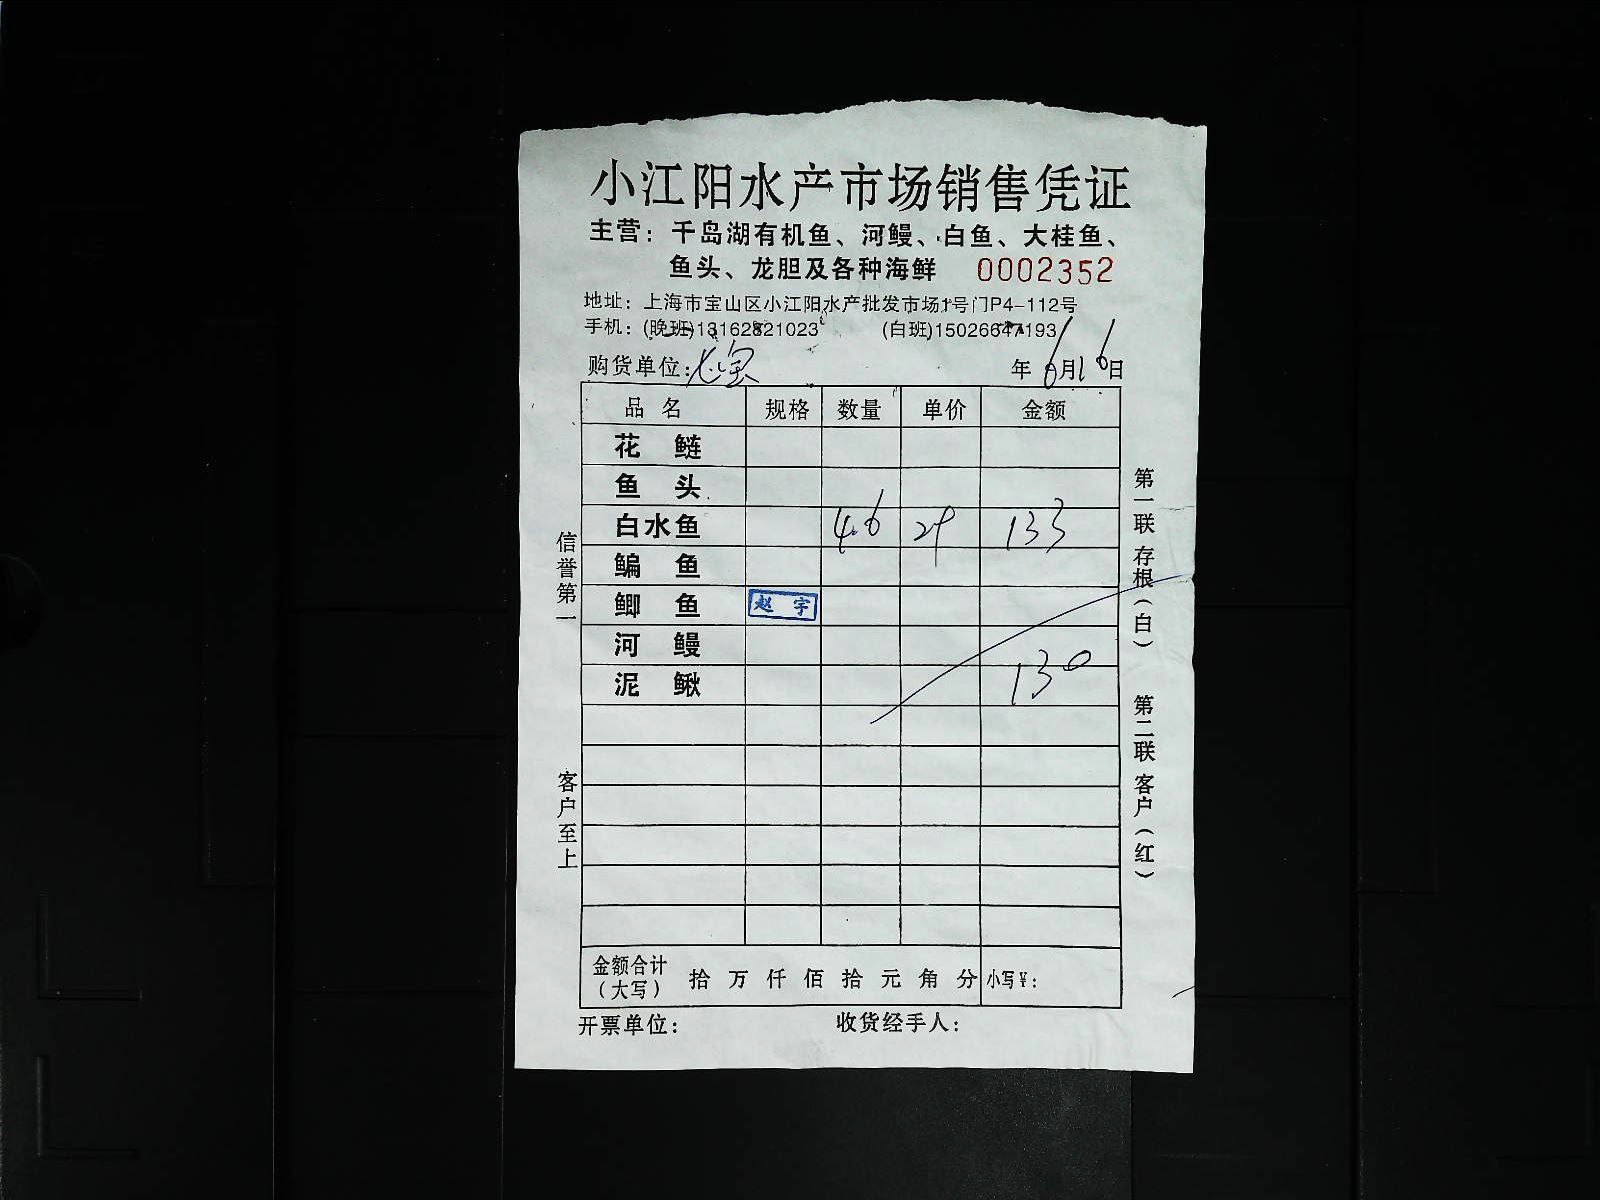 小江阳水产市场销售凭证
主营：千岛湖有机鱼、河鳗、白鱼、大桂鱼、
鱼头、龙胆及各种海鲜 0002352
地址：上海市宝山区小江阳水产批发市场1号门P4-112号
手机：(晚班)13162821023 (白班)15026647193
购货单位： 年6月16日
品名 规格 数量 单价 金额
花鲢
鱼头
白水鱼 4.6 29 133
鳊鱼
鲫鱼 赵宇
河鳗
泥鳅 130
金额合计(大写) 拾万仟佰拾元角分 小写¥:
开票单位： 收货经手人：
信誉第一
客户至上
第一联存根(白)
第二联客户(红)